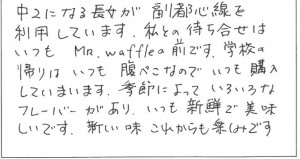 中2になる長女が 副都心線を
利用しています。私との待ち合せは
いつも Mr. waffleの前です。学校の
帰りは いつも 腹ペこなので いつも 購入
していまいます。季節によって いろいろな
フレーバーがあり、いつも 新鮮で 美味
しいです。新しい味 これからも楽しみです